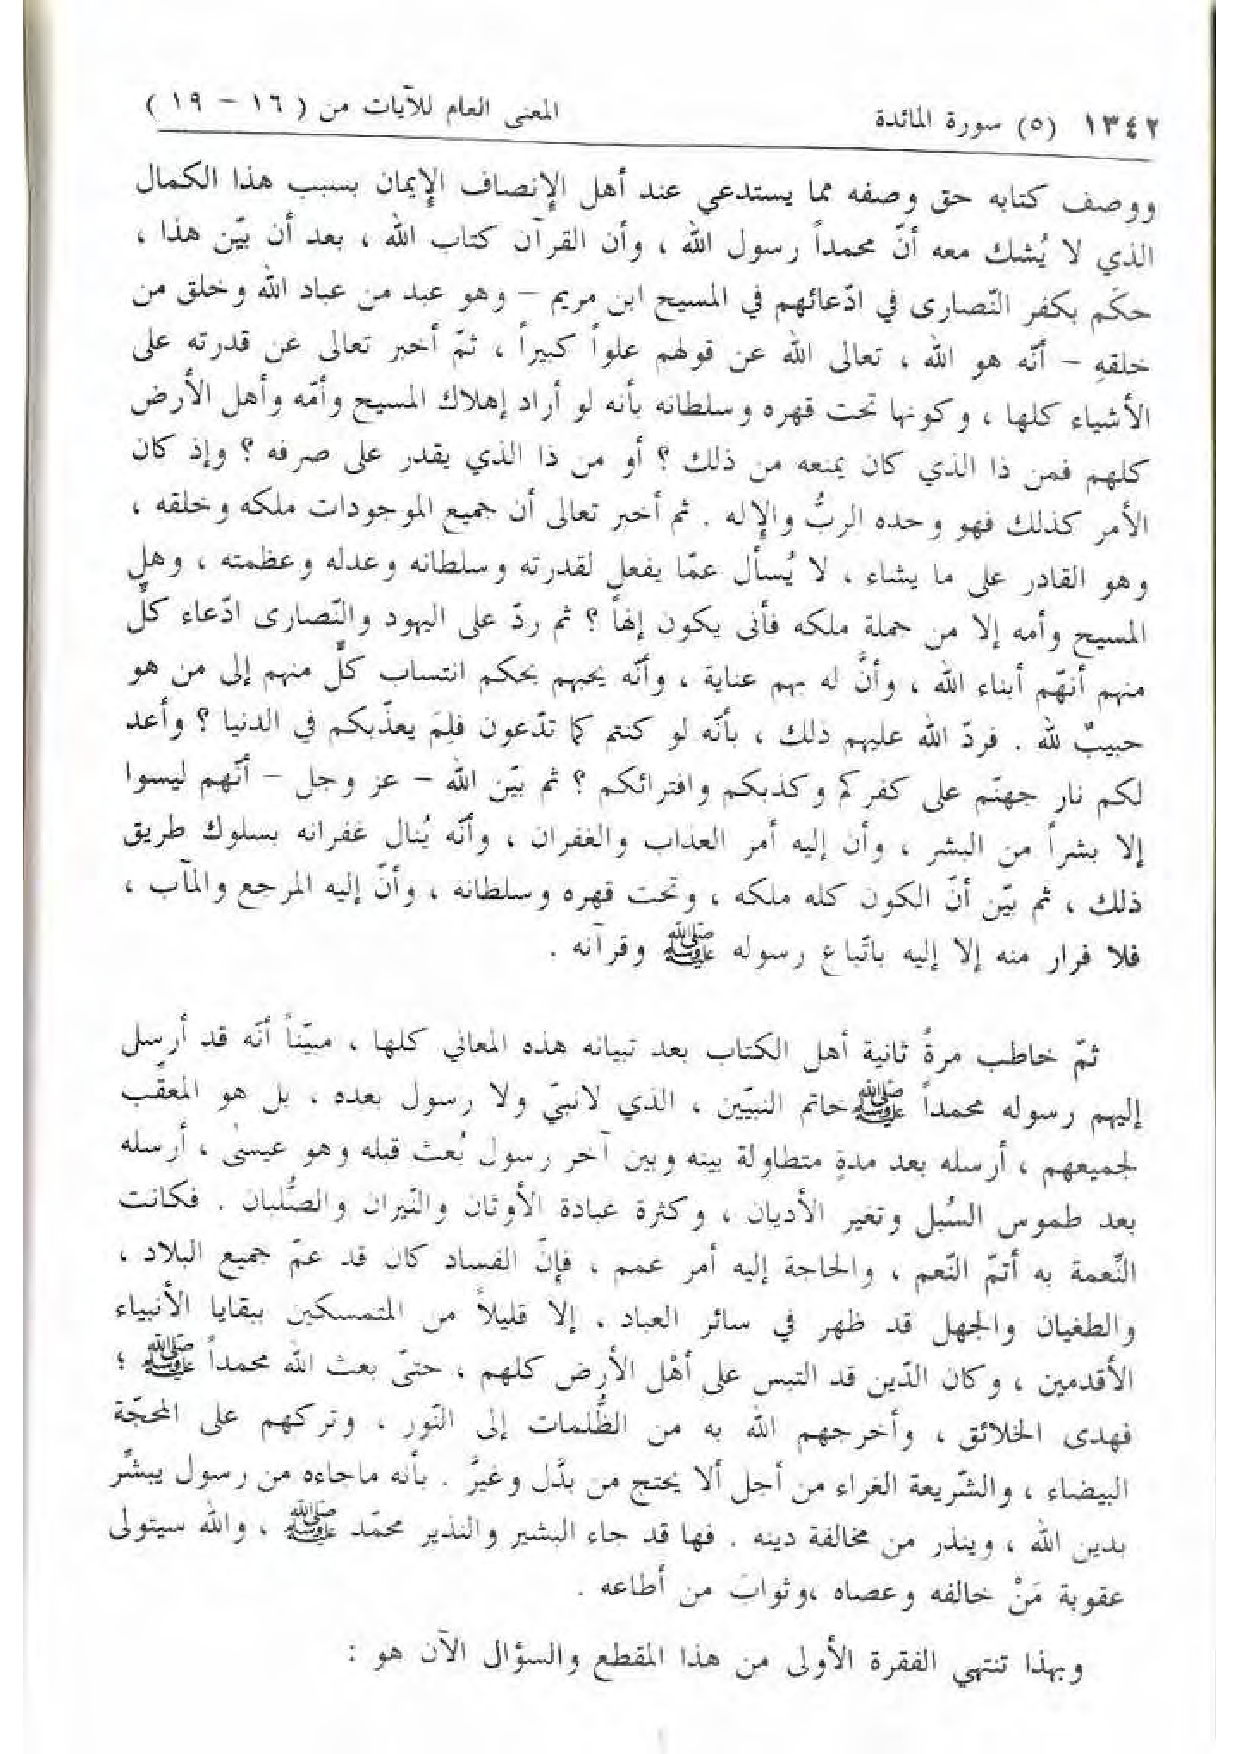 ١٣٤٢ (٥) سورة المائدة المعنى العام للآيات من (١٦ - ١٩)
ووصف كتابه حق وصفه مما يستدعي عند أهل الإنصاف الإيمان بسبب هذا الكمال
الذي لا يُشك معه أنّ محمداً رسول الله ، وأن القرآن كتاب الله ، بعد أن بيّن هذا ،
حكَم بكفر النّصارى في ادّعائهم في المسيح ابن مريم - وهو عبد من عباد الله وخلق من
خلقهِ - أنّه هو الله ، تعالى الله عن قولهم علواً كبيراً ، ثمّ أخبر تعالى عن قدرته على
الأشياء كلها ، وكونها تحت قهره وسلطانه بأنه لو أراد إهلاك المسيح وأمّه وأهل الأرض
كلهم فمن ذا الذي كان يمنعه من ذلك ؟ أو من ذا الذي يقدر على صرفه ؟ وإذ كان
الأمر كذلك فهو وحده الربُّ والإله . ثم أخبر تعالى أن جميع الموجودات ملكه وخلقه ،
وهو القادر على ما يشاء ، لا يُسأل عمّا يفعل لقدرته وسلطانه وعدله وعظمته ، وهل
المسيح وأمه إلا من جملة ملكه فأنى يكون إلهاً ؟ ثم ردّ على اليهود والنّصارى ادّعاء كلٍّ
منهم أنهّم أبناء الله ، وأنَّ له بهم عناية ، وأنّه يحبهم بحكم انتساب كلٍّ منهم إلى من هو
حبيبٌ لله . فردّ الله عليهم ذلك ، بأنّه لو كنتم كما تدّعون فلِمَ يعذّبكم في الدنيا ؟ وأعد
لكم نار جهنّم على كفركم وكذبكم وافترائكم ؟ ثم بيّن الله - عز وجل - أنّهم ليسوا
إلا بشراً من البشر ، وأن إليه أمر العذاب والغفران ، وأنّه يُنال غفرانه بسلوك طريق
ذلك ، ثم بيّن أنّ الكون كله ملكه ، وتحت قهره وسلطانه ، وأنّ إليه المرجع والمآب ،
فلا فرار منه إلا إليه باتّباع رسوله ﷺ وقرآنه .
ثمّ خاطب مرةً ثانية أهل الكتاب بعد تبيانه هذه المعاني كلها ، مبيّناً أنّه قد أرسل
إليهم رسوله محمداً ﷺ خاتم النبيّين ، الذي لانبيّ ولا رسول بعده . بل هو المعقّب
لجميعهم ، أرسله بعد مدةٍ متطاولة بينه وبين آخر رسول بُعث قبله وهو عيسىٰ ، أرسله
بعد طموس السُبل وتغير الأديان ، وكثرة عبادة الأوثان والنّيران والصُّلبان . فكانت
النّعمة به أتمّ النّعم ، والحاجة إليه أمر عمم ، فإنّ الفساد كان قد عمّ جميع البلاد ،
والطغيان والجهل قد ظهر في سائر العباد ، إلا قليلاً من المتمسكين ببقايا الأنبياء
الأقدمين ، وكان الدّين قد التبس على أهْل الأرض كلهم ، حتىّ بعث الله محمداً ﷺ ؛
فهدى الخلائق ، وأخرجهم الله به من الظُّلمات إلى النّور ، وتركهم على المحجّة
البيضاء ، والشّريعة الغراء من أجل ألا يحتج من بدَّل وغيرَّ . بأنه ماجاءه من رسول يبشّر
بدين الله ، وينذر من مخالفة دينه . فها قد جاء البشير والنذير محمّد ﷺ ، والله سيتولى
عقوبة مَنْ خالفه وعصاه ،وثوابَ من أطاعه .
وبهذا تنتهي الفقرة الأولى من هذا المقطع والسؤال الآن هو :